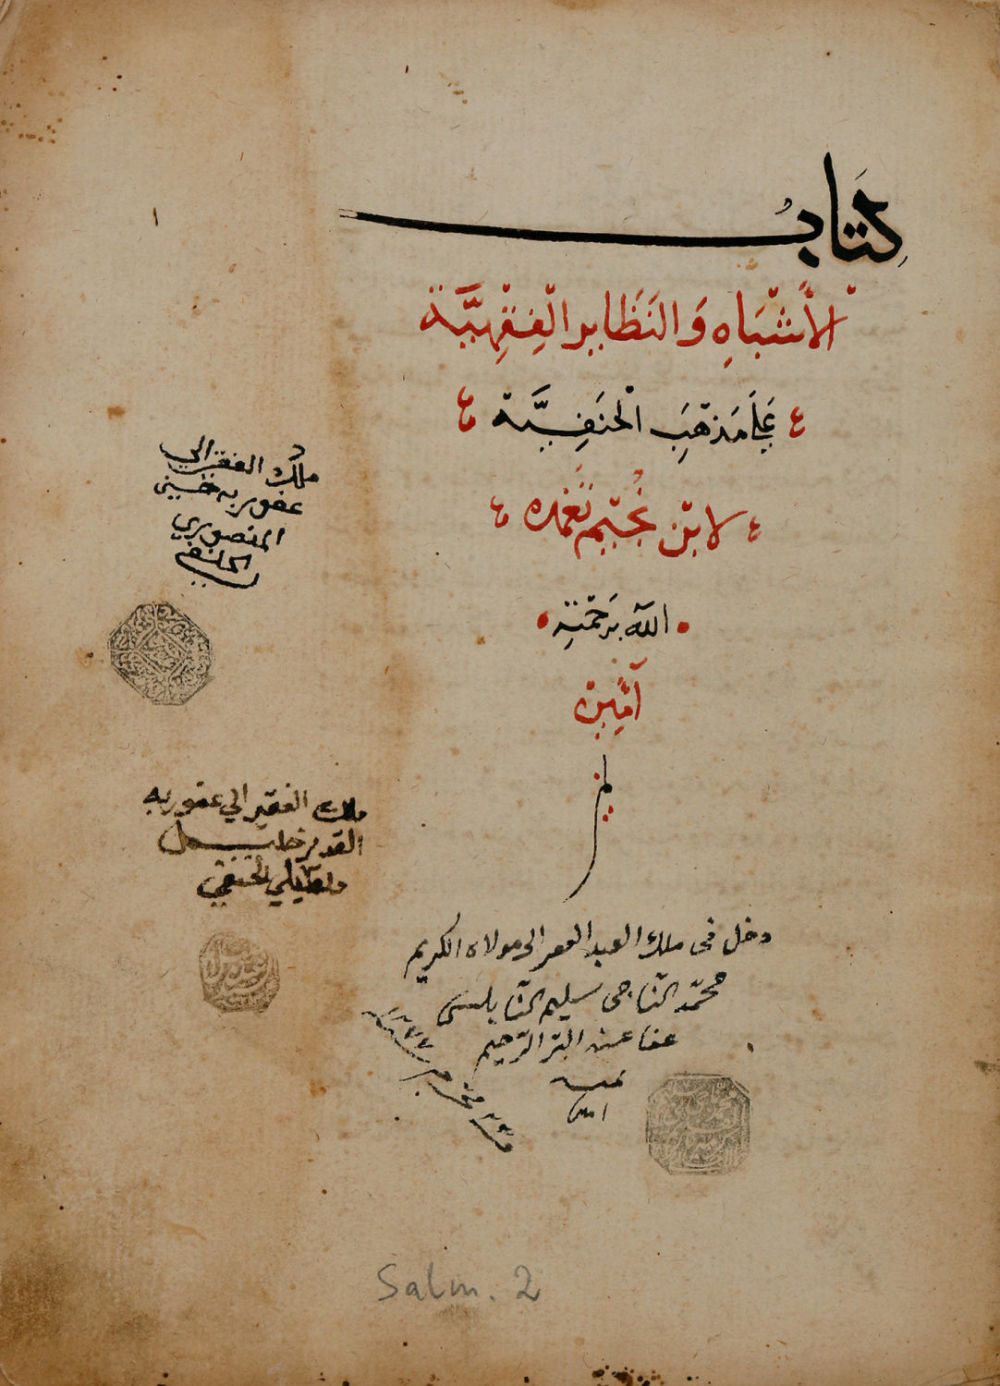 كتاب
الأشباه والنظاير الفقهية
على مذهب الحنفية
لابن نجيم تغمده
الله برحمته
آمين
ملك الفقير الي
عفو ربه حسين
المنصوري
الحنفي
ملك الفقير الي عفو ربه
القدير خليل
الحنفي
دخل في ملك العبد الفقير الى مولاه الكريم
محمد الناجى سليم النابلسى
عفا عنه البر الرحيم
امين
Salm. 2